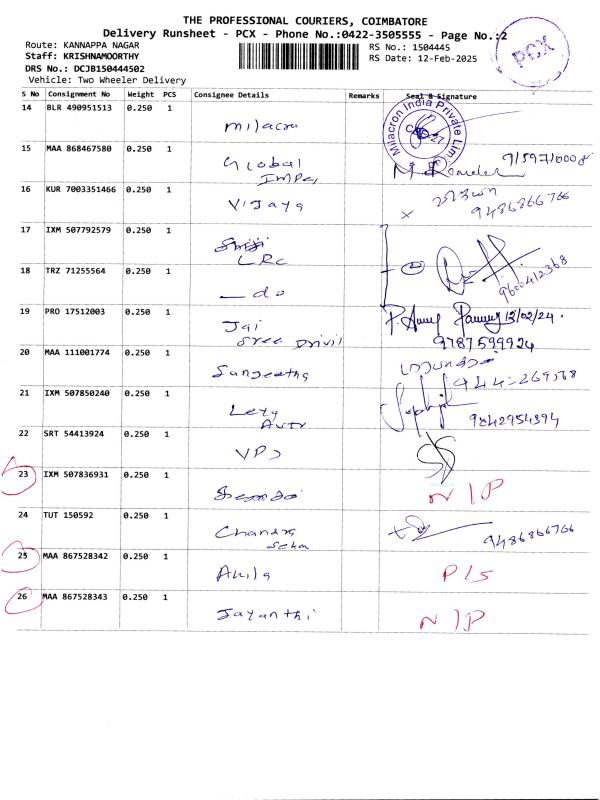 THE PROFESSIONAL COURIERS, COIMBATORE
Delivery Runsheet - PCX - Phone No.:0422-3505555 - Page No.:2
Route: KANNAPPA NAGAR
Staff: KRISHNAMOORTHY
DRS No.: DCJB150444502
Vehicle: Two Wheeler Delivery
RS No.: 1504445
RS Date: 12-Feb-2025
PCX
S No Consignment No Weight PCS Consignee Details Remarks Seal & Signature
14 BLR 490951513 0.250 1 Milacro
Milacron India Private Lim
15 MAA 868467580 0.250 1 Global
16 KUR 7003351466 0.250 1 Vijaya 9486866766
17 IXM 507792579 0.250 1
LRC
18 TRZ 71255564 0.250 1 — do 9600412368
19 PRO 17512003 0.250 1 Jai 13/02/24.
Sree 9787599924
20 MAA 111001774 0.250 1 Sangeetha
21 IXM 507850240 0.250 1 9842954394
22 SRT 54413924 0.250 1 VPS
23 IXM 507836931 0.250 1 N/P
24 TUT 150592 0.250 1 Chandra 9486866766
25 MAA 867528342 0.250 1 Akila P/S
26 MAA 867528343 0.250 1 Jayanthi N/P